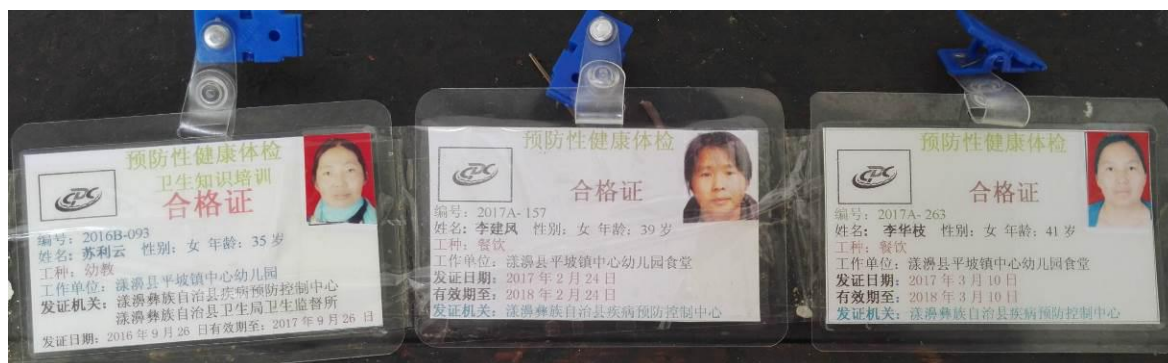 预防性健康体检
卫生知识培训
CDC
合格证
编号：2016B-093
姓名：苏利云 性别：女 年龄：35岁
工种：幼教
工作单位：漾濞县平坡镇中心幼儿园
发证机关：漾濞彝族自治县疾病预防控制中心
漾濞彝族自治县卫生局卫生监督所
发证日期：2016年9月26日有效期至：2017年9月26日
预防性健康体检
CDC
合格证
编号：2017A-157
姓名：李建风 性别：女 年龄：39岁
工种：餐饮
工作单位：漾濞县平坡镇中心幼儿园食堂
发证日期：2017年2月24日
有效期至：2018年2月24日
发证机关：漾濞彝族自治县疾病预防控制中心
预防性健康体检
CDC
合格证
编号：2017A-263
姓名：李华枝 性别：女 年龄：41岁
工种：餐饮
工作单位：漾濞县平坡镇中心幼儿园食堂
发证日期：2017年3月10日
有效期至：2018年3月10日
发证机关：漾濞彝族自治县疾病预防控制中心